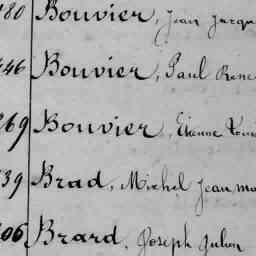 180 Bouvier, Jean Jacqu
446 Bouvier, Paul René
269 Bouvier, Etienne Voui
39 Brad, Michel Jean ma
06 Brard, Joseph Julien